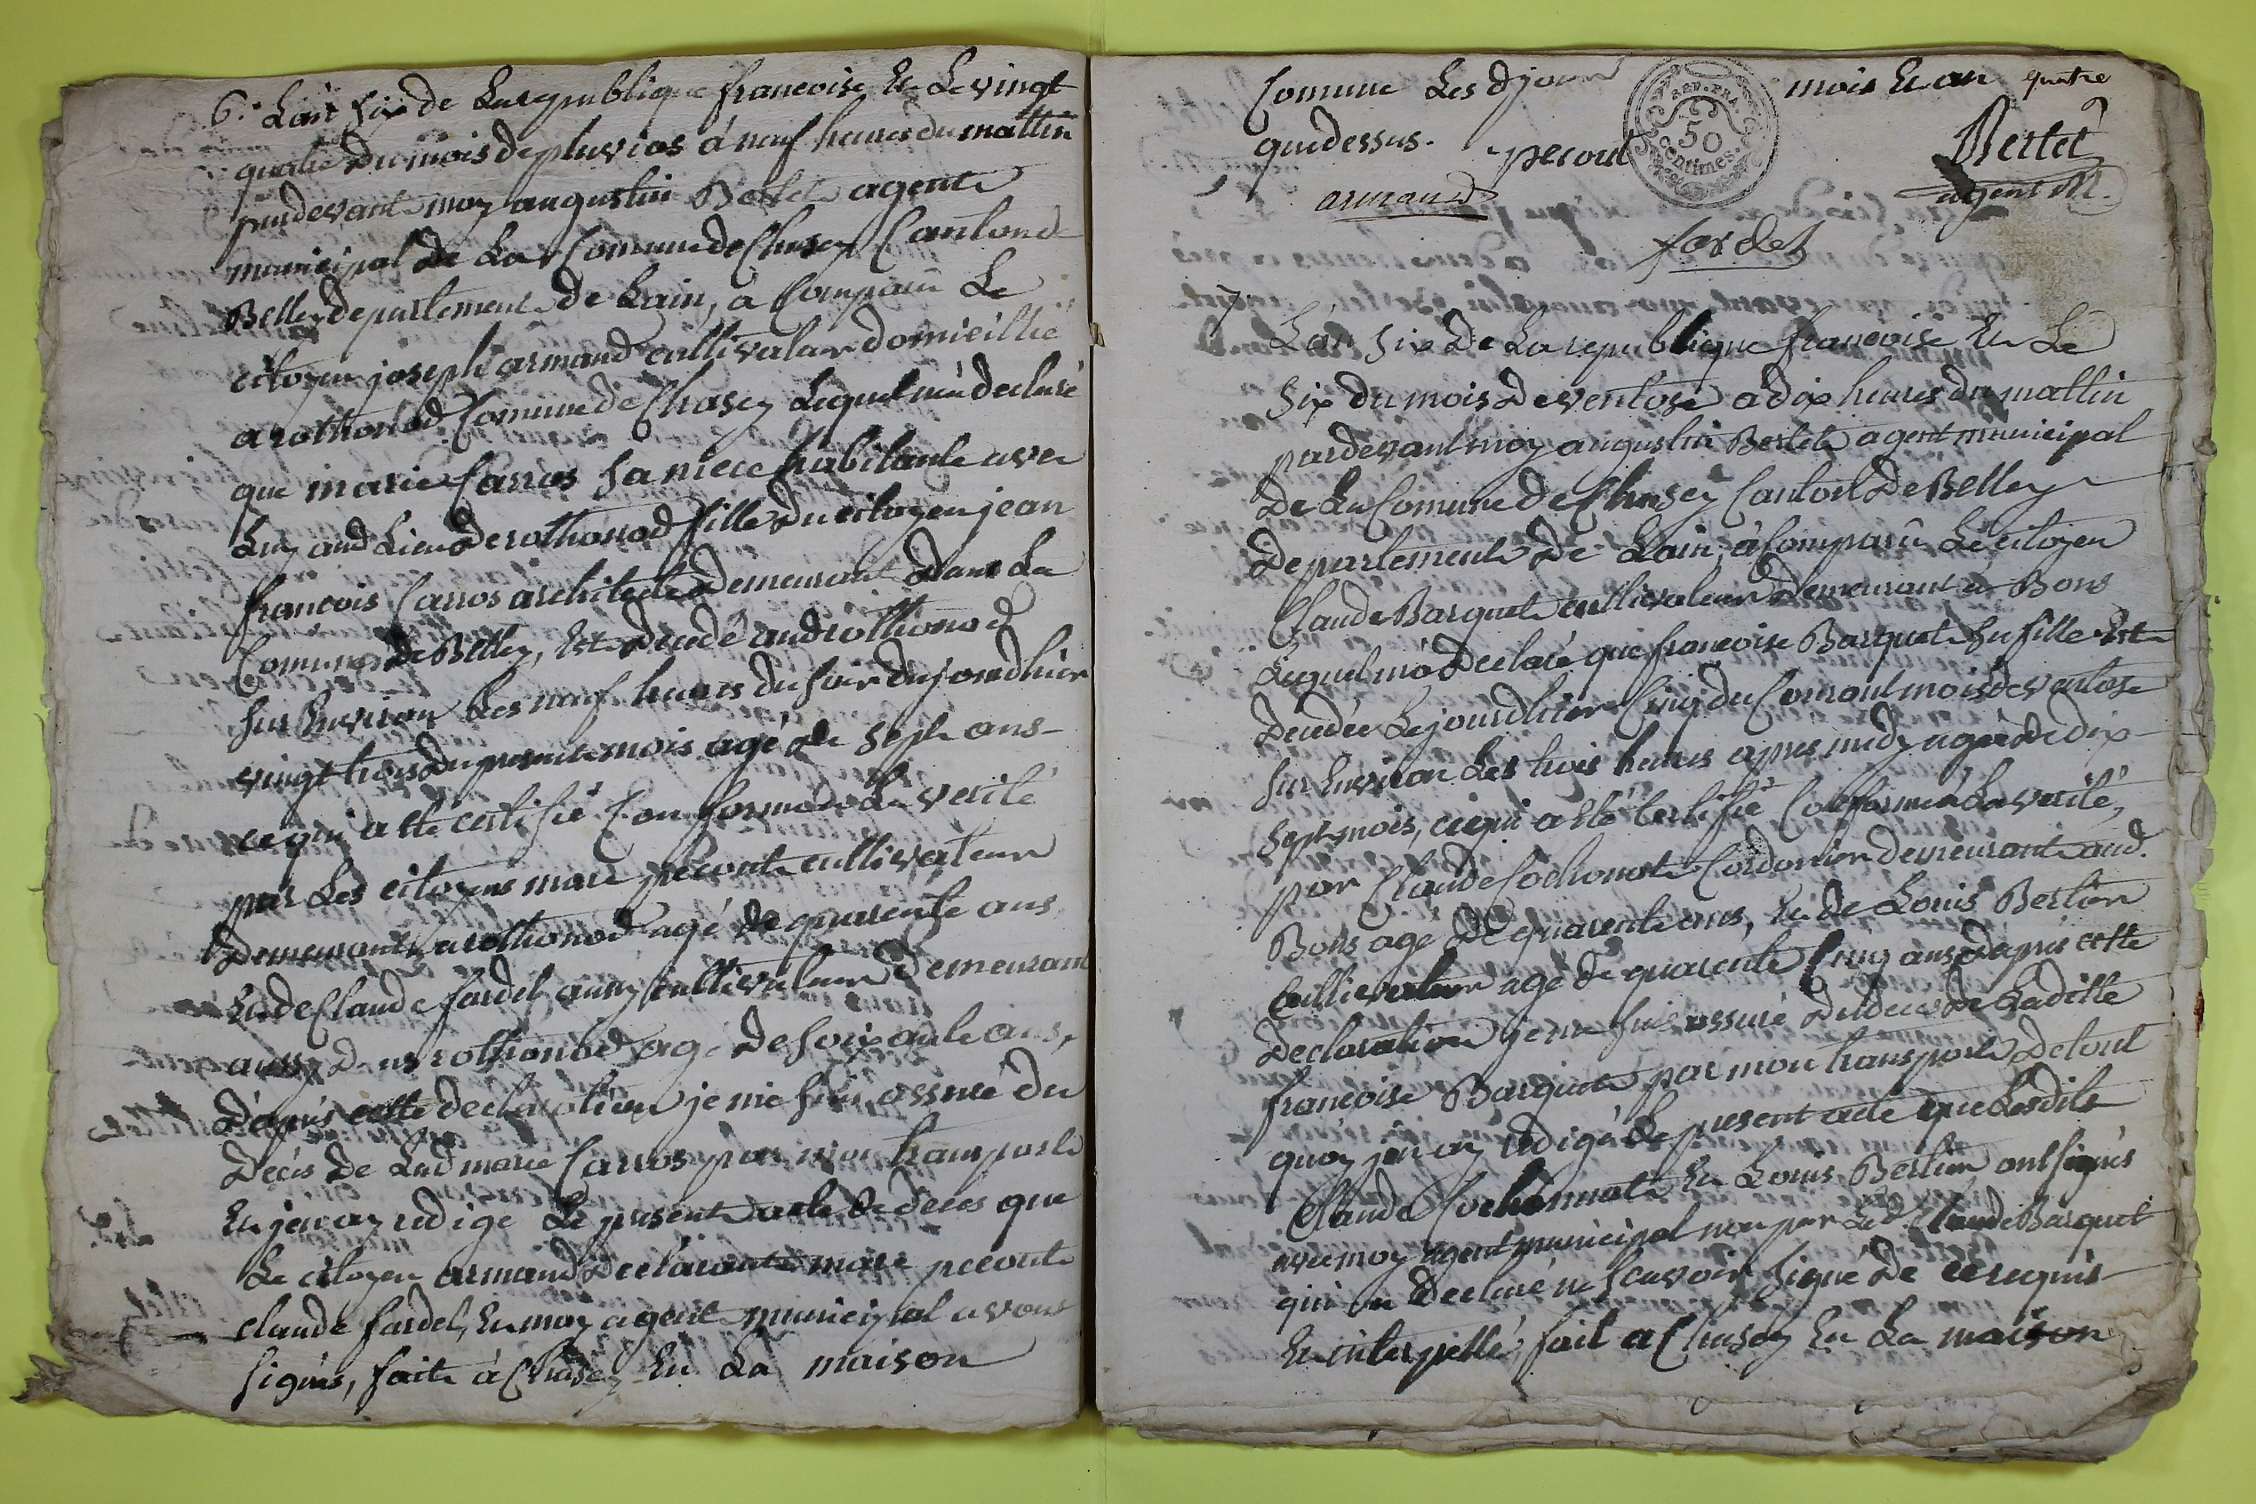 6.e Lan six de La republique francoise Et Le vingt
quatre du mois de pluvios à neuf heures du mattin
pardevant moy augustin Bertet agent
municipal de La Comune de Chasey Canton de
Belley departement de Lain, à Comparu Le
citoyen joseph armand cultivateur domicillié
a rothonod Comune de Chasey Lequel mà declaré
que marie Carros sa niece habitante avec
Luy aud Lieu de rothonod fille du citoyen jean
francois Carros architecte demeurant dans La
Comune de Belley, Est decedé aud rothonod
sur Environ Les neuf heures du soir du jourdhier
vingt trois du present mois agé de sept ans
ce qui a ette certifié Conforme à La verité
par Les citoyens marc pecout cultivateur
demeurant a rothonod agé de quarente ans
Et de Claude fardel aussy cultivateur demeurant
aussy a rothonod agé de soixante ans,
d'apres cette declaration je me suis assuré du
decès de Lad marie Carros par mon transport
Et jen ay redigé Le present acte de deces que
Le citoyen armand declarant marc pecout
claude fardel, Et moy agent municipal avons
signés, fait à Chasey En La maison
Comune Les d jour mois Et an quatre
que dessus. pecout Bertet
armand agent M.
REP. FRA.
50
centimes.
fardel
7 L'an six de La republique francoise Et Le
six du mois de ventose à dix heures du mattin
pardevant moy augustin Bertet agent municipal
de La Comune de Chasey Canton de Belley
departement de Lain, à Comparû Le citoyen
Claude Barquet cultivateur demeurant à Bons
Lequel m'à declaré que francoise Barquet sa fille Est
decedée Le jourdhier Cinq du Courant mois de ventose
sur Environ Les trois heures apres midy agée de dix
sept mois, ce qui a eté Certifié Conforme à La verité,
par Claude Cochonat Cordonier demeurant aud.
Bons agé de quarente ans, Et de Louis Bertin
Cultivateur agé de quarente Cinq ans d'apres cette
declaration je me suis assuré du deces de Ladite
francoise Barquet par mon transport, de tout
quoy jen ay redigé Le present acte que Lesdits
Claude Cochonnat Et Louis Bertin ont signés
avec moy agent municipal non par Led. Claude Barquet
qui a declaré ne scavoir signé de ce requis
Et interpellé, fait a Chasey En La maison